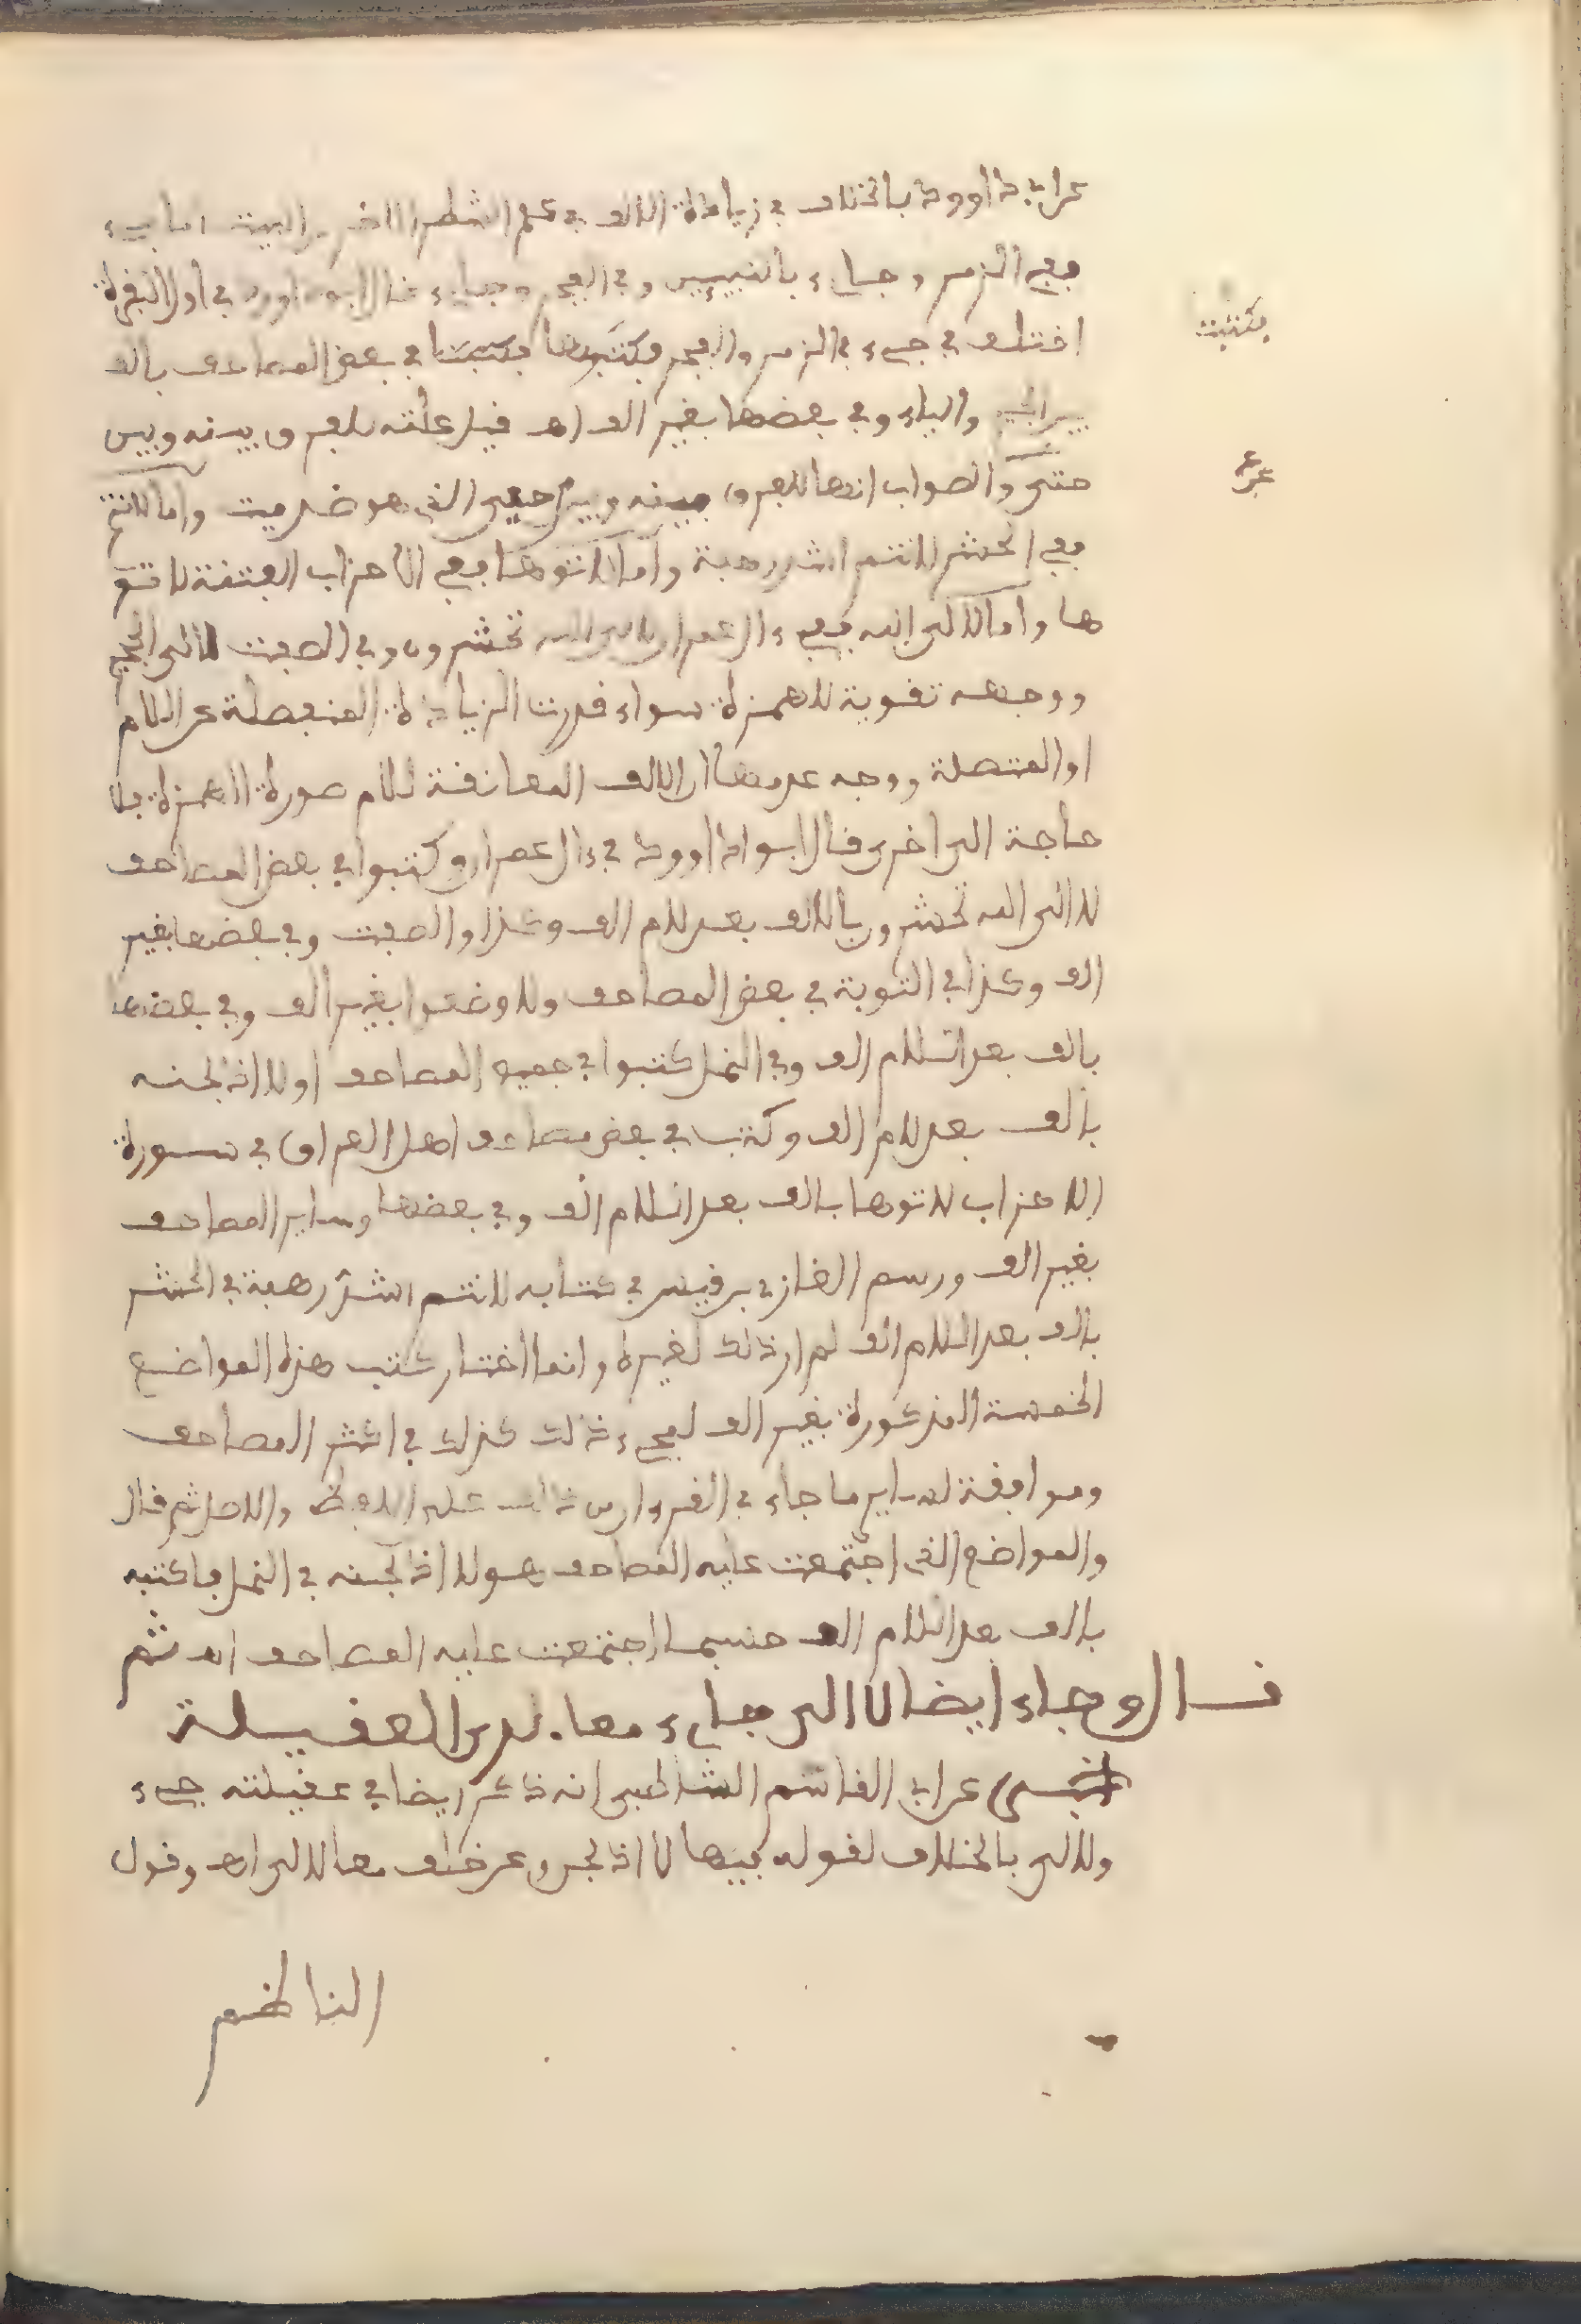 عن ابي داوود باختلاف في زيادة الالف في كلم الشطر الاخر من البيت اما جيء
ففي الزمر وجايء بالنبيين وفي الفجر وجايء قال ابو داوود في اول البقرة
اختلف في جيء في الزمر والفجر فكتبوها فكتبتا في بعض المصاحف بالف
فكتبت
بين الجيم والياء وفي بعضها بغير الف اه قيل علته للفرق بينه وبين
حتى والصواب انها للفرق بينه وبين حي الذي هو ضد ميت واما لانتم
ففي الحشر لانتم اشد رهبة واما لاتوها ففي الاحزاب الفتنة لاتو
ها واما لالى الله ففي ءال عمران لالى الله تحشرون وفي الصفت لالى الجحيم
ووجهه تقوية للهمزة سواء قدرت الزيادة المنفصلة عن اللام
او المتصلة ووجه عدمها ان الالف المعانقة للام صورة الهمزة فلا
حاجة الى اخرى قال ابو داوود في ءال عمران وكتبوا في بعض المصاحف
لا الى الله تحشرون بالف بعد لام الف وكذا والصفت وفي بعضها بغير
الف وكذا في التوبة في بعض المصاحف ولاوضعوا بغير الف وفي بعضها
بالف بعد اللام الف وفي النمل كتبوا في جميع المصاحف او لااذبحنه
بالف بعد لام الف وكتب في بعض مصاحف اهل العراق في سورة
الاحزاب لاتوها بالف بعد اللام الف وفي بعضها وساير المصاحف
بغير الف ورسم الغازي بن قيس في كتابه لانتم اشد رهبة في الحشر
بالف بعد اللام الف لم ار ذلك لغيره وانما اختار كتب هذه المواضع
الخمسة المذكورة بغير الف لمجيء ذلك كذلك في اكثر المصاحف
وموافقة لساير ما جاء في القرءان من ذلك على اللفظ والاصل ثم قال
والمواضع الذي اجتمعت عليه المصاحف هو لااذبحنه في النمل فاكتبه
بالف بعد اللام الف حسبما اجتمعت عليه المصاحف اه ثم
قال وجاء ايضا لاالى جايء معا. لدى العقيلة
عن ابي القاسم الشاطبي انه ذكر ايضا في عقيلته جيء
ولالى بالخلاف لقوله فيها لااذبحن وعن خلف معا لالى اه وقول
الناظم